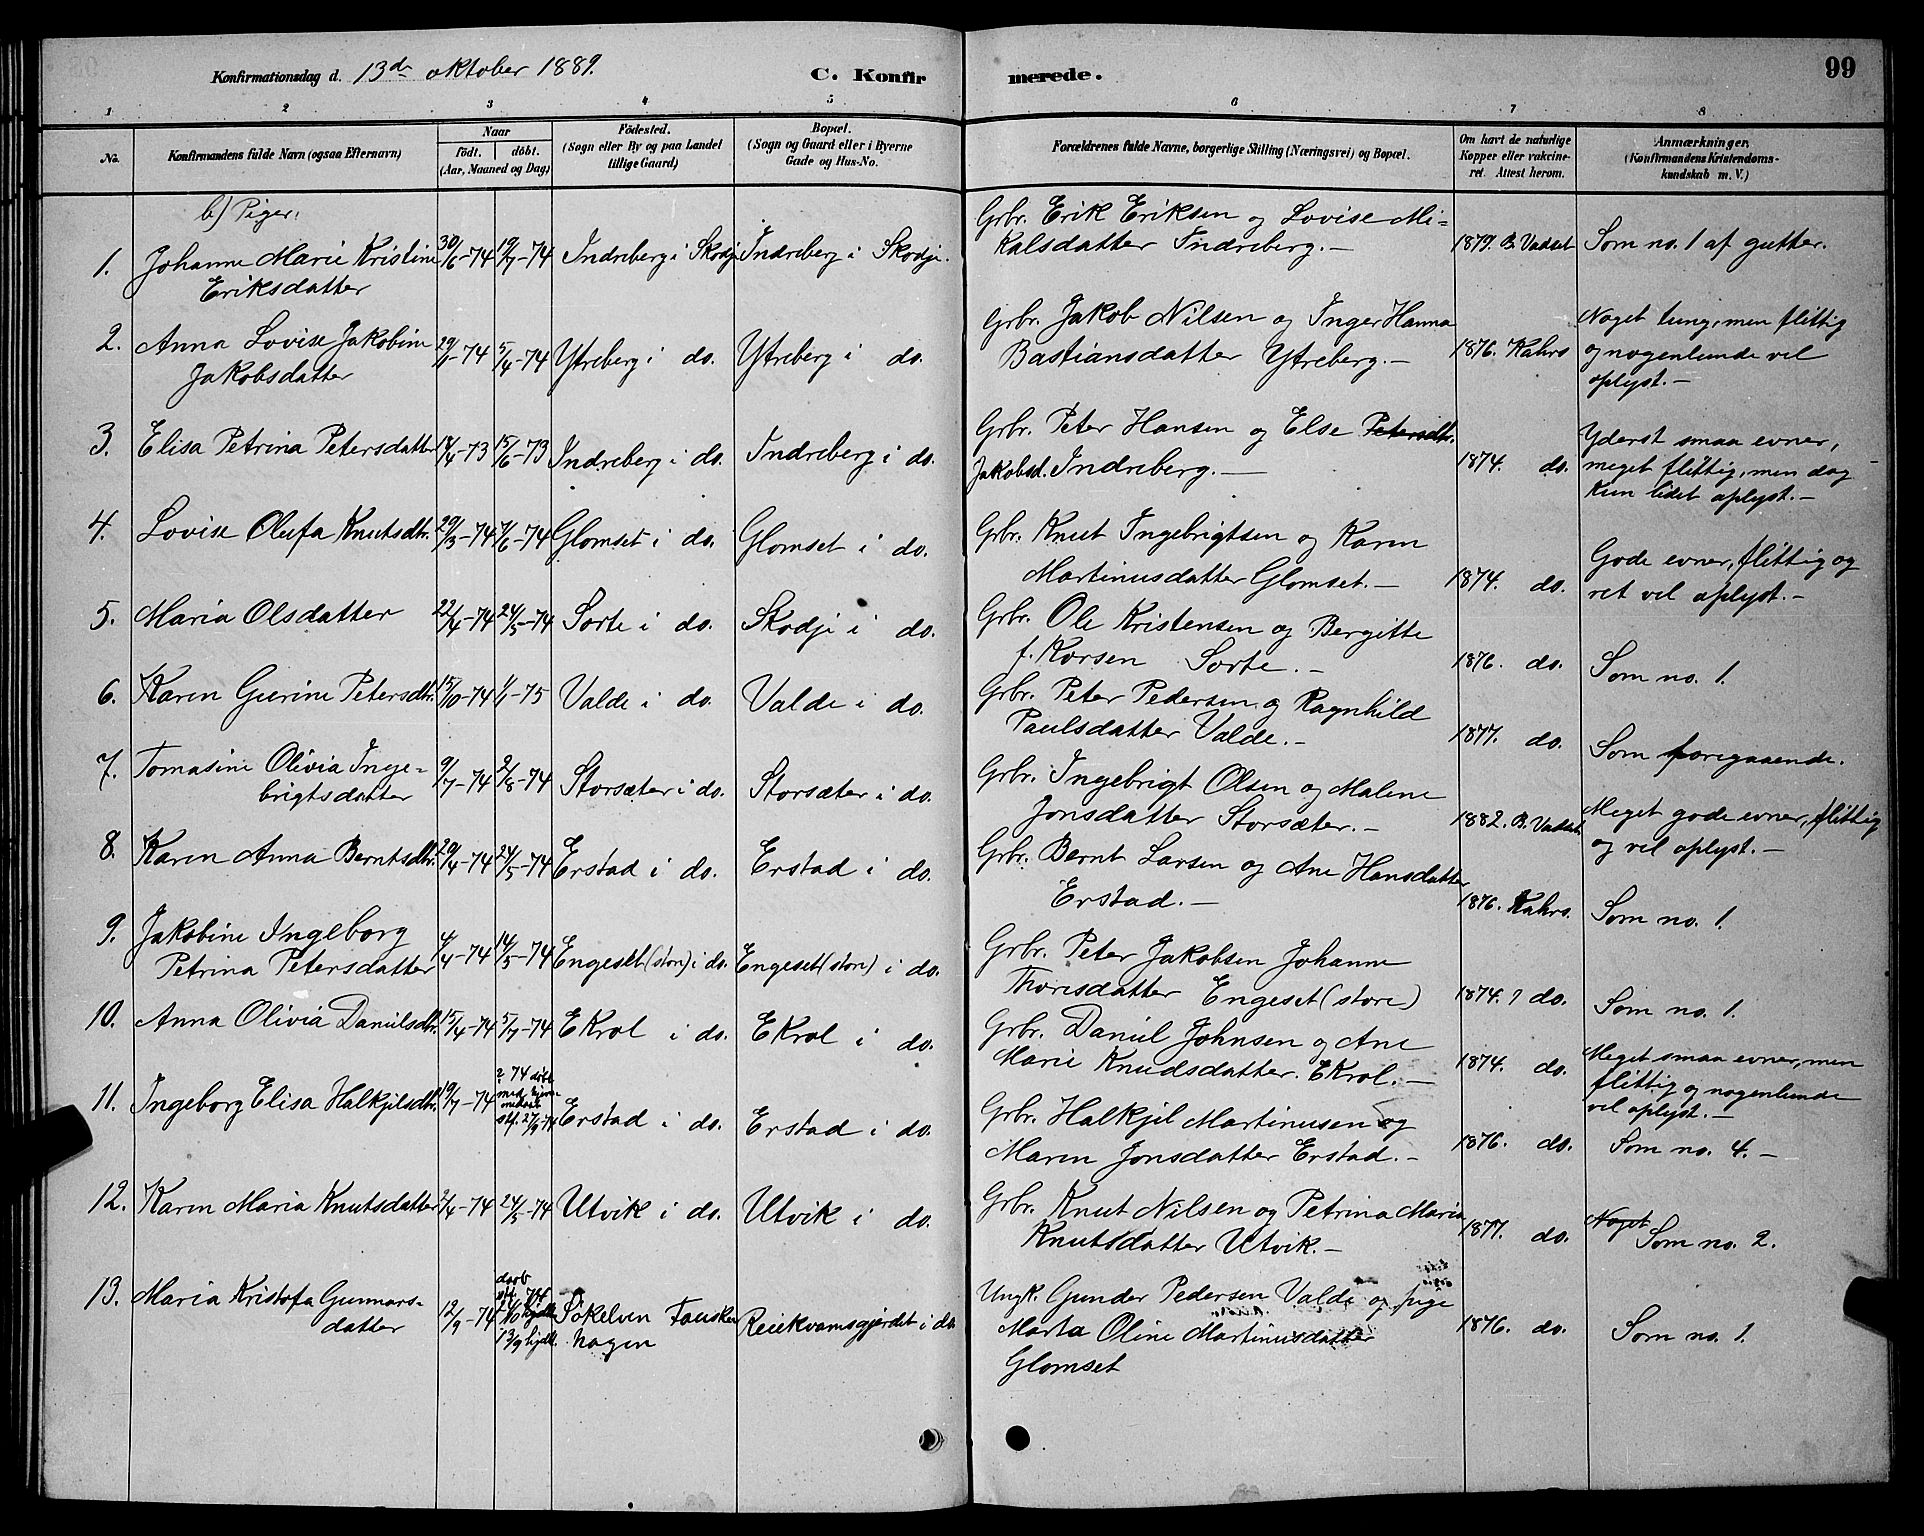 Konfirmationsdag d. 13de oktober 1889. C. Konfirmerede. 99
1 2 3 4 5 6 7 8
No. Konfirmandens fulde Navn (ogsaa Efternavn) Naar født. døbt. (Aar, Maaned og Dag) Fødested. (Sogn eller By og paa Landet tillige Gaard) Bopæl. (Sogn og Gaard eller i Byerne Gade og Hus-No. Forældrenes fulde Navne, borgerlige Stilling (Næringsvei) og Bopæl. Om havt de naturlige Kopper eller vakcineret. Attest herom. Anmærkninger. (Konfirmandens Kristendomskundskab m. V.)
b) Piger:
1. Johanne Marie Kristine 30/6-74 19/7-74 Indreberg i Skodje Indreberg i Skodje. Grbr. Erik Eriksen og Lovise Mi- 1879. B. Vadset Som no. 1 af gutter.
Eriksdatter kalsdatter Indreberg.-
2. Anna Lovise Jakobine 29/1-74 5/4-74 Ytreberg i do. Ytreberg i do. Grbr. Jakob Nilsen og Inger Hanna 1876. Kahrs Noget tung, men flittig
Jakobsdatter Bastiansdatter Ytreberg.- og nogenlunde vel
oplyst.-
3. Elisa Petrina Petersdatter 14/4-73 15/6-73 Indreberg i do. Indreberg i do. Grbr. Peter Hansen og Else Petersdtr. 1874. do. Yderst smaa evner,
Jakobsd. Indreberg.- meget flittig, men dog
kun lidet oplyst.-
4. Lovise Olufa Knutsdtr. 29/3-74 7/6-74 Glomset i do. Glomset i do. Grbr. Knut Ingebrigtsen og Karen 1874. do. Gode evner, flittig og
Martinusdatter Glomset.- ret vel oplyst.-
5. Maria Olsdatter 22/4-74 24/5-74 Sorte i do. Skodje i do. Grbr. Ole Kristensen og Bergitte 1876. do. Som no. 1.
f. Korsen Sorte.-
6. Karen Gurine Petersdtr. 15/10-74 1/1-75 Valde i do. Valde i do. Grbr. Peter Pedersen og Ragnhild 1877. do. Som foregaaende.
Paulsdatter Valde.-
7. Tomasine Olivia Inge- 9/7-74 2/8-74 Storsæter i do. Storsæter i do. Grbr. Ingebrigt Olsen og Malene 1882. B. Vadset Meget gode evner, flittig
brigtsdatter Jonsdatter Storsæter.- og vel oplyst.-
8. Karen Anna Berntsdtr. 29/4-74 24/5-74 Erstad i do. Erstad i do. Grbr. Bernt Larsen og Ane Hansdatter 1876. Kahrs. Som no. 1.
Erstad.-
9. Jakobine Ingeborg 4/4-74 14/5-74 Engeset (store) i do. Engeset (store) i do. Grbr. Peter Jakobsen Johanne 1874. ? do. Som no. 1.
Petrina Petersdatter Thoresdatter Engeset (store)
10. Anna Olivia Danielsdtr. 15/4-74 5/7-74 Ekrol i do. Ekrol i do. Grbr. Daniel Johnsen og Ane 1874. do. Meget smaa evner, men
Marie Knudsdatter. Ekrol.- flittig og nogenlunde
vel oplyst.-
11. Ingeborg Elisa Halkjilsdtr. 19/7-74 ? 74 døbt Erstad i do. Erstad i do. Grbr. Halkjil Martinusen og 1876. do. Som no. 4.-
stf. 27/9-74 Maren Jonsdatter Erstad.-
12. Karen Maria Knutsdatter 2/4-74 24/5-74 Utvik i do. Utvik i do. Grbr. Knut Nilsen og Petrina Maria 1877. do. Noget Som no. 2.
Knutsdatter Utvik.-
13. Maria Kristofa Gunnars- 12/9-74 daab 13/9 hjdb. Søkelven Fausken Reiekvamsgjerdet i do. Ungk. Gunder Pedersen Valde og pige 1876. do. Som no. 1.
datter hagen Marta Oline Martinusdatter
Glomset